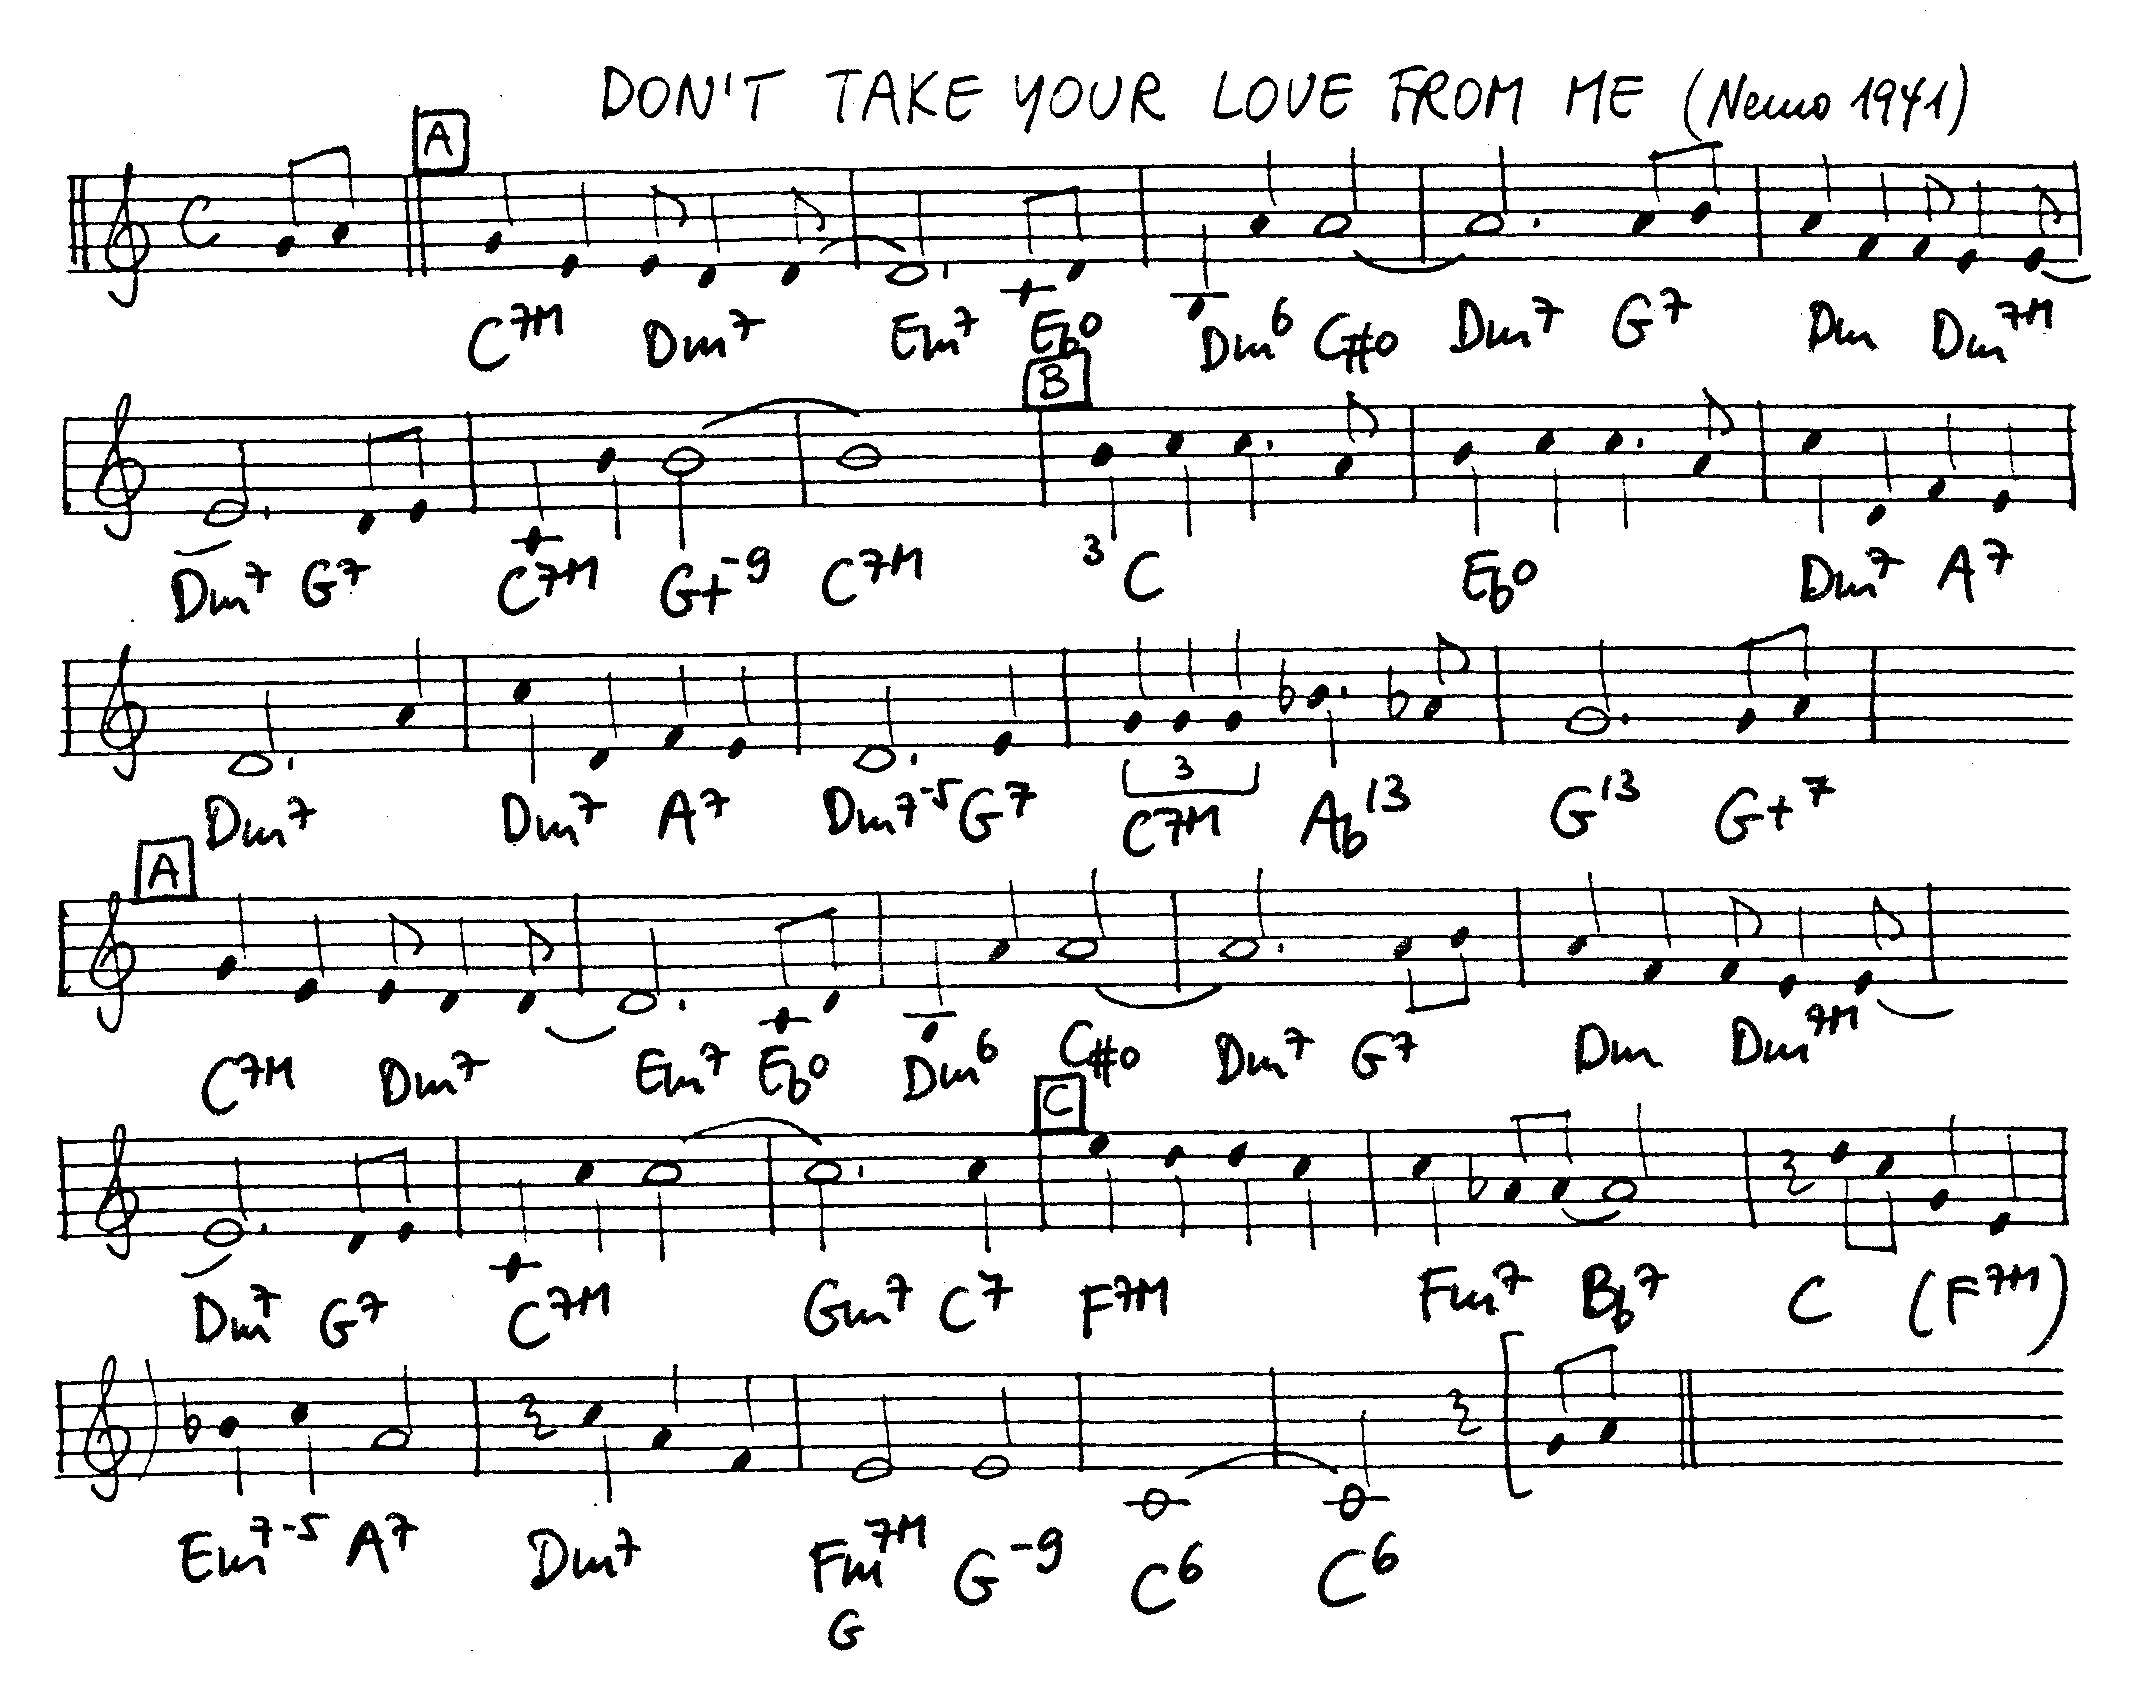 DON'T TAKE YOUR LOVE FROM ME (Nemo 1941)
A
C
C7M Dm7 Em7 Eb0 Dm6 C#0 Dm7 G7 Dm Dm7M
B
Dm7 G7 C7M G+-9 C7M 3 C Eb0 Dm7 A7
3
Dm7 Dm7 A7 Dm7-5 G7 C7M Ab13 G13 G+7
A
C7M Dm7 Em7 Eb0 Dm6 C#0 Dm7 G7 Dm Dm7M
C
Dm7 G7 C7M Gm7 C7 F7M Fm7 Bb7 C (F7M)
Em7-5 A7 Dm7 Fm7M G-9 C6 C6
G